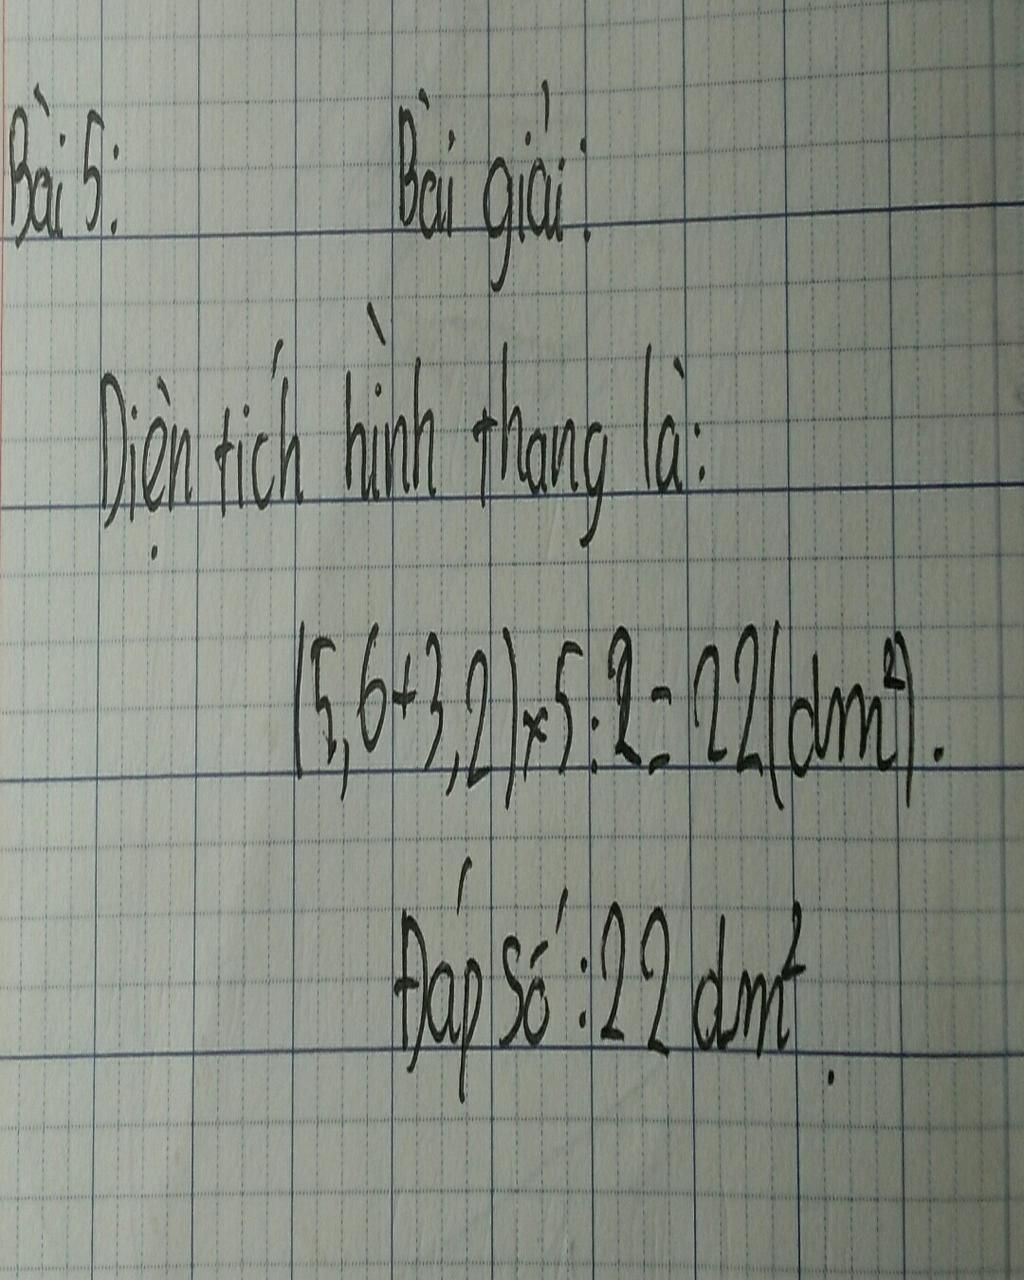 Bài 5: Bài giải:
Diện tích hình thang là:
(5,6+3,2)×5:2=22(dm²).
Đáp số:22 dm².